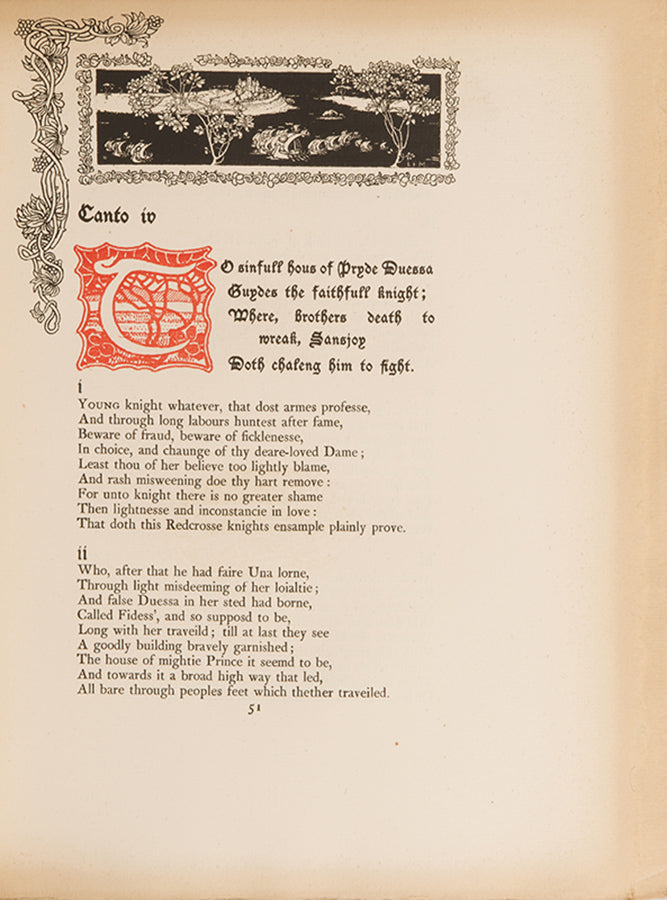 Canto iv
TO sinfull hous of Pryde Duessa
Guydes the faithfull knight;
Where, brothers death to
wreak, Sansjoy
Doth chaleng him to fight.
i
YOUNG knight whatever, that dost armes professe,
And through long labours huntest after fame,
Beware of fraud, beware of ficklenesse,
In choice, and chaunge of thy deare-loved Dame;
Least thou of her believe too lightly blame,
And rash misweening doe thy hart remove:
For unto knight there is no greater shame
Then lightnesse and inconstancie in love:
That doth this Redcrosse knights ensample plainly prove.
ii
Who, after that he had faire Una lorne,
Through light misdeeming of her loialtie;
And false Duessa in her sted had borne,
Called Fidess', and so supposd to be,
Long with her traveild; till at last they see
A goodly building bravely garnished;
The house of mightie Prince it seemd to be,
And towards it a broad high way that led,
All bare through peoples feet which thether traveiled.
51